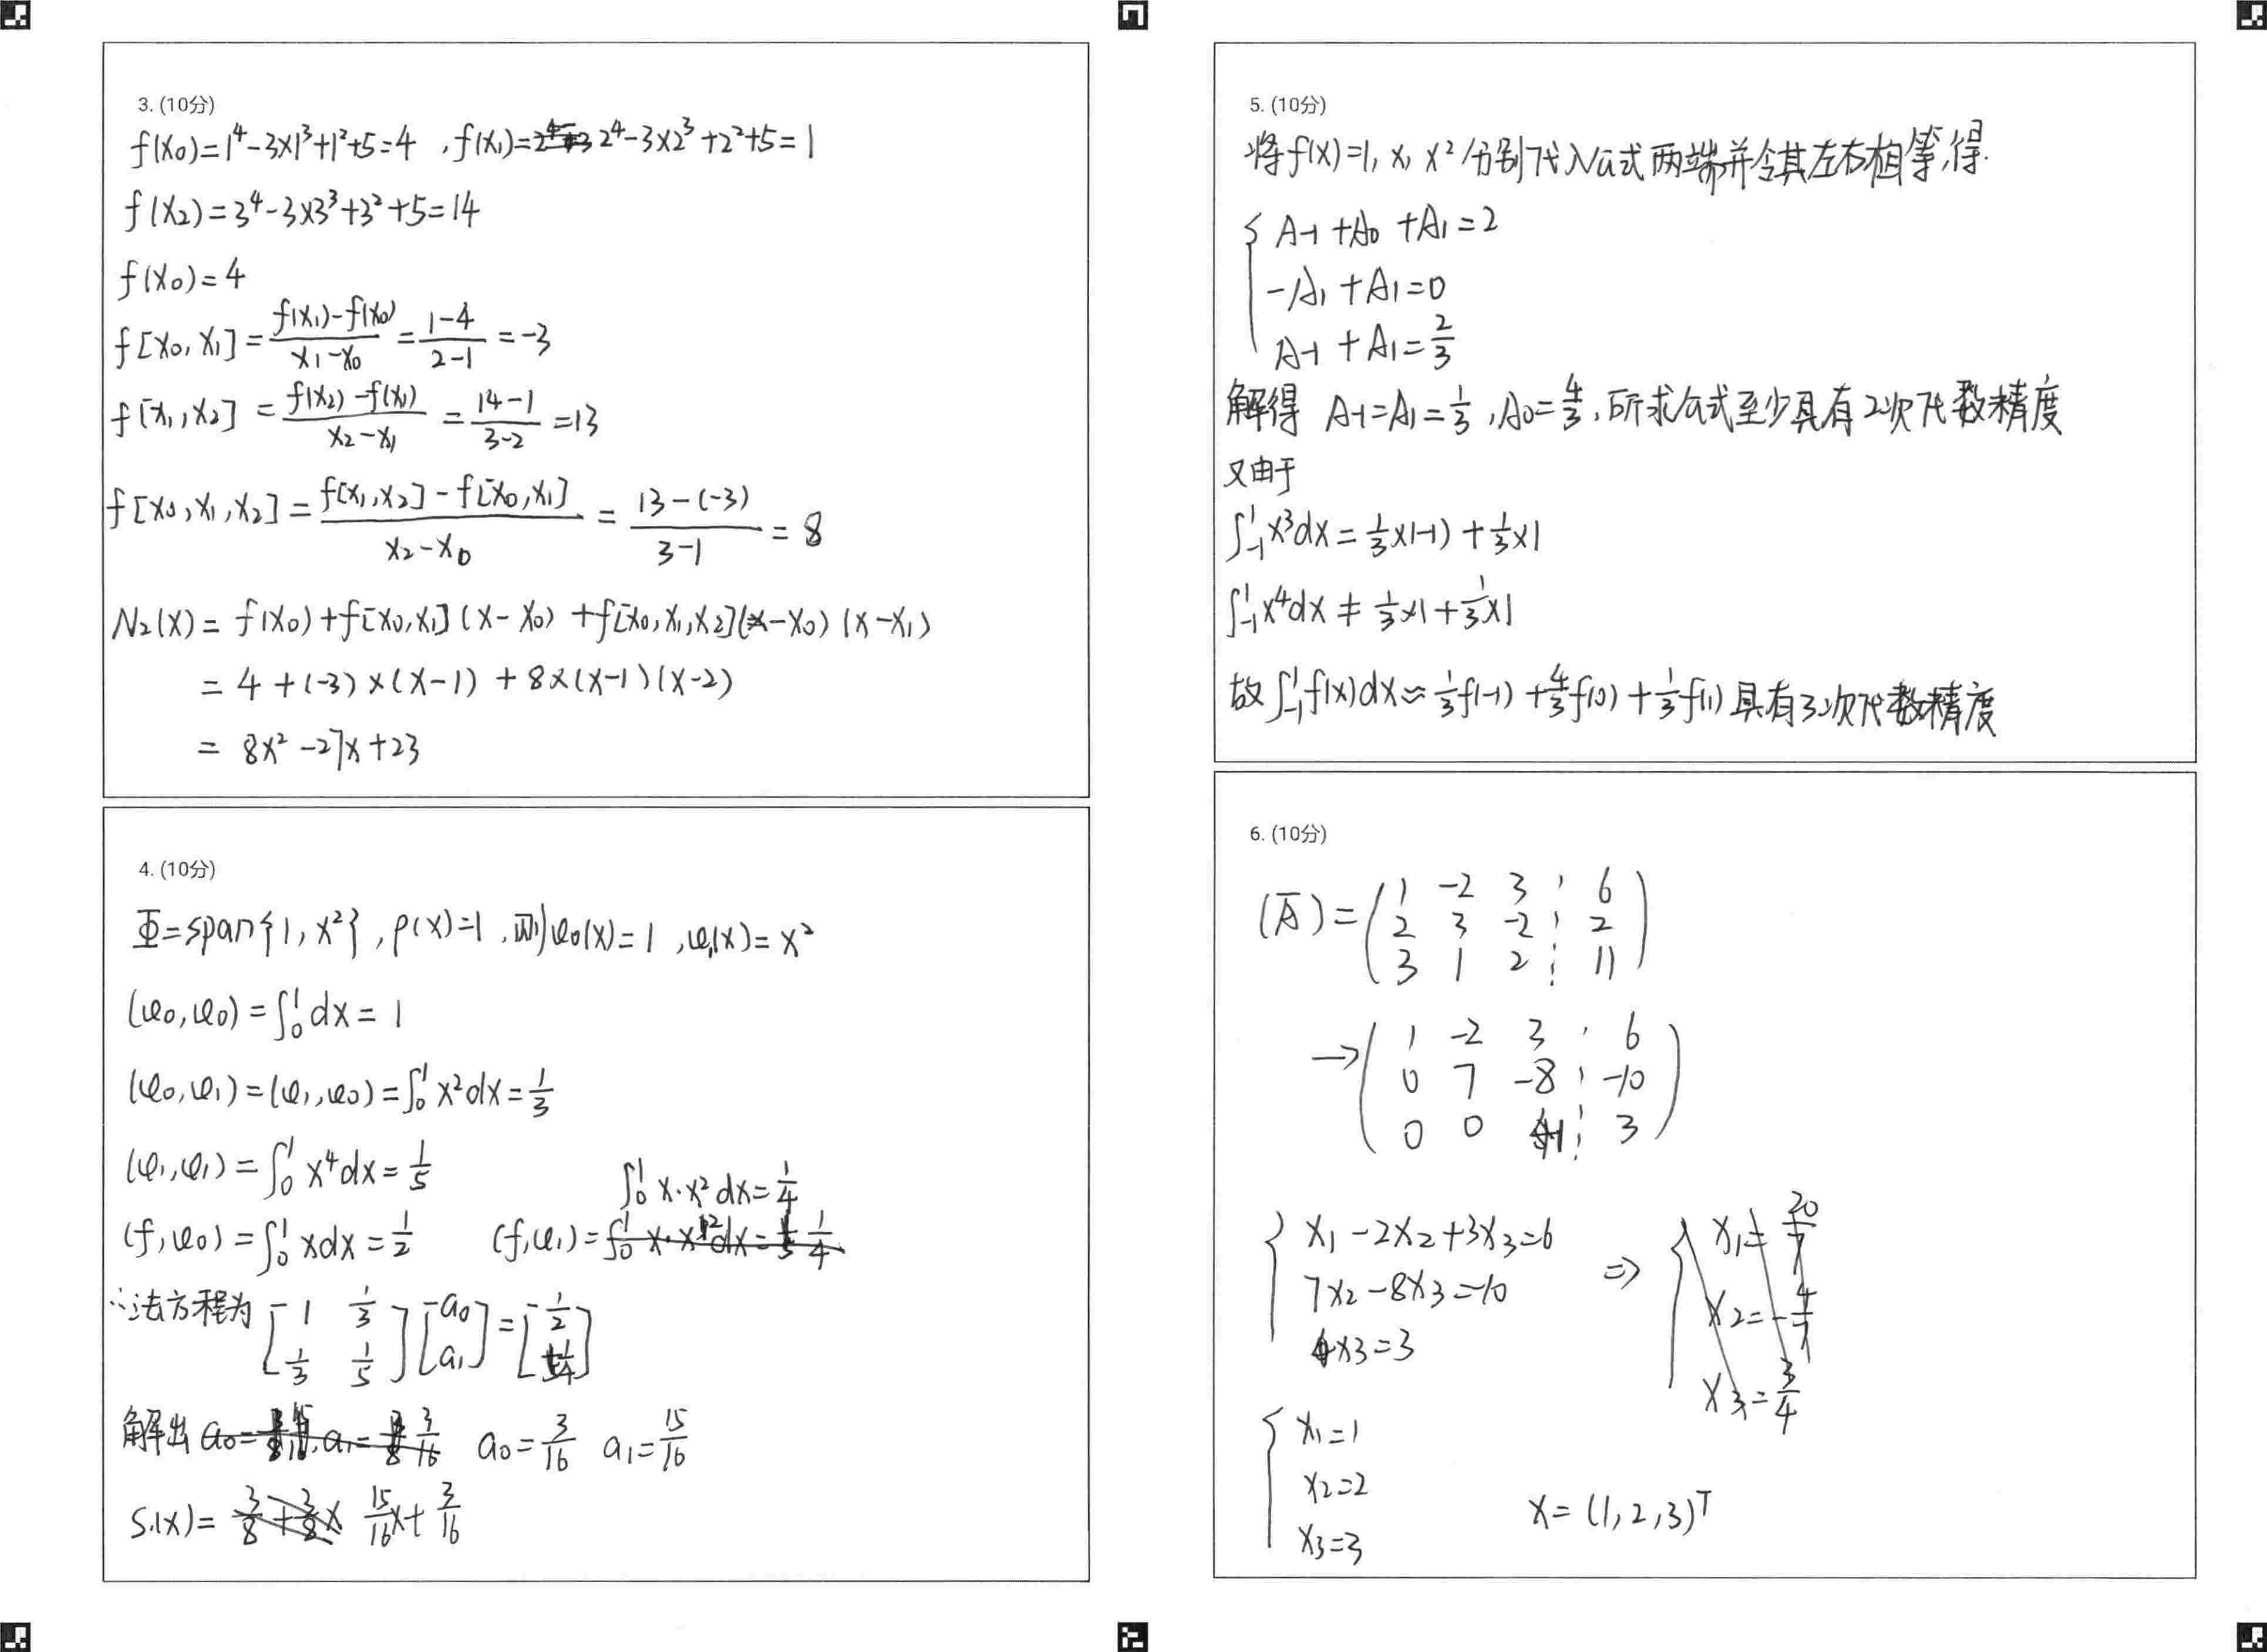 3. (10分)
f(x₀)=1⁴-3×1³+1²+5=4 ,f(x₁)=2⁴-3×2³+2²+5=1
f(x₂)=3⁴-3×3³+3²+5=14
f(x₀)=4
f[x₀,x₁]=\frac{f(x₁)-f(x₀)}{x₁-x₀}=\frac{1-4}{2-1}=-3
f[x₁,x₂]=\frac{f(x₂)-f(x₁)}{x₂-x₁}=\frac{14-1}{3-2}=13
f[x₀,x₁,x₂]=\frac{f[x₁,x₂]-f[x₀,x₁]}{x₂-x₀}=\frac{13-(-3)}{3-1}=8
N₂(x)=f(x₀)+f[x₀,x₁](x-x₀)+f[x₀,x₁,x₂](x-x₀)(x-x₁)
=4+(-3)×(x-1)+8×(x-1)(x-2)
=8x²-27x+23
4. (10分)
Φ=span{1,x²},ρ(x)=1,则φ₀(x)=1,φ₁(x)=x²
(φ₀,φ₀)=∫₀¹dx=1
(φ₀,φ₁)=(φ₁,φ₀)=∫₀¹x²dx=\frac{1}{3}
(φ₁,φ₁)=∫₀¹x⁴dx=\frac{1}{5}
∫₀¹x·x²dx=\frac{1}{4}
(f,φ₀)=∫₀¹xdx=\frac{1}{2} (f,φ₁)=
∴法方程为[1 \frac{1}{3}; \frac{1}{3} \frac{1}{5}][a₀; a₁]=[\frac{1}{2}; \frac{1}{4}]
解出 a₀=\frac{3}{16} a₁=\frac{15}{16}
S₁(x)=\frac{15}{16}x+\frac{3}{16}
5. (10分)
将f(x)=1,x,x²分别代入公式两端并令其左右相等,得.
A₋₁+A₀+A₁=2
-A₁+A₁=0
A₋₁+A₁=\frac{2}{3}
解得 A₋₁=A₁=\frac{1}{3},A₀=\frac{4}{3},所求公式至少具有2次代数精度
又由于
∫₋₁¹x³dx=\frac{1}{3}×(-1)+\frac{1}{3}×1
∫₋₁¹x⁴dx≠\frac{1}{3}×1+\frac{1}{3}×1
故∫₋₁¹f(x)dx≈\frac{1}{3}f(-1)+\frac{4}{3}f(0)+\frac{1}{3}f(1)具有3次代数精度
6. (10分)
(Ā)=(1 -2 3 ┆ 6
2 3 -2 ┆ 2
3 1 2 ┆ 11)
→(1 -2 3 ┆ 6
0 7 -8 ┆ -10
0 0 1 ┆ 3)
x₁-2x₂+3x₃=6
7x₂-8x₃=-10
x₃=3
⇒
x₁=\frac{20}{7}
x₂=-\frac{4}{7}
x₃=\frac{3}{4}
x₁=1
x₂=2
x₃=3
x=(1,2,3)ᵀ